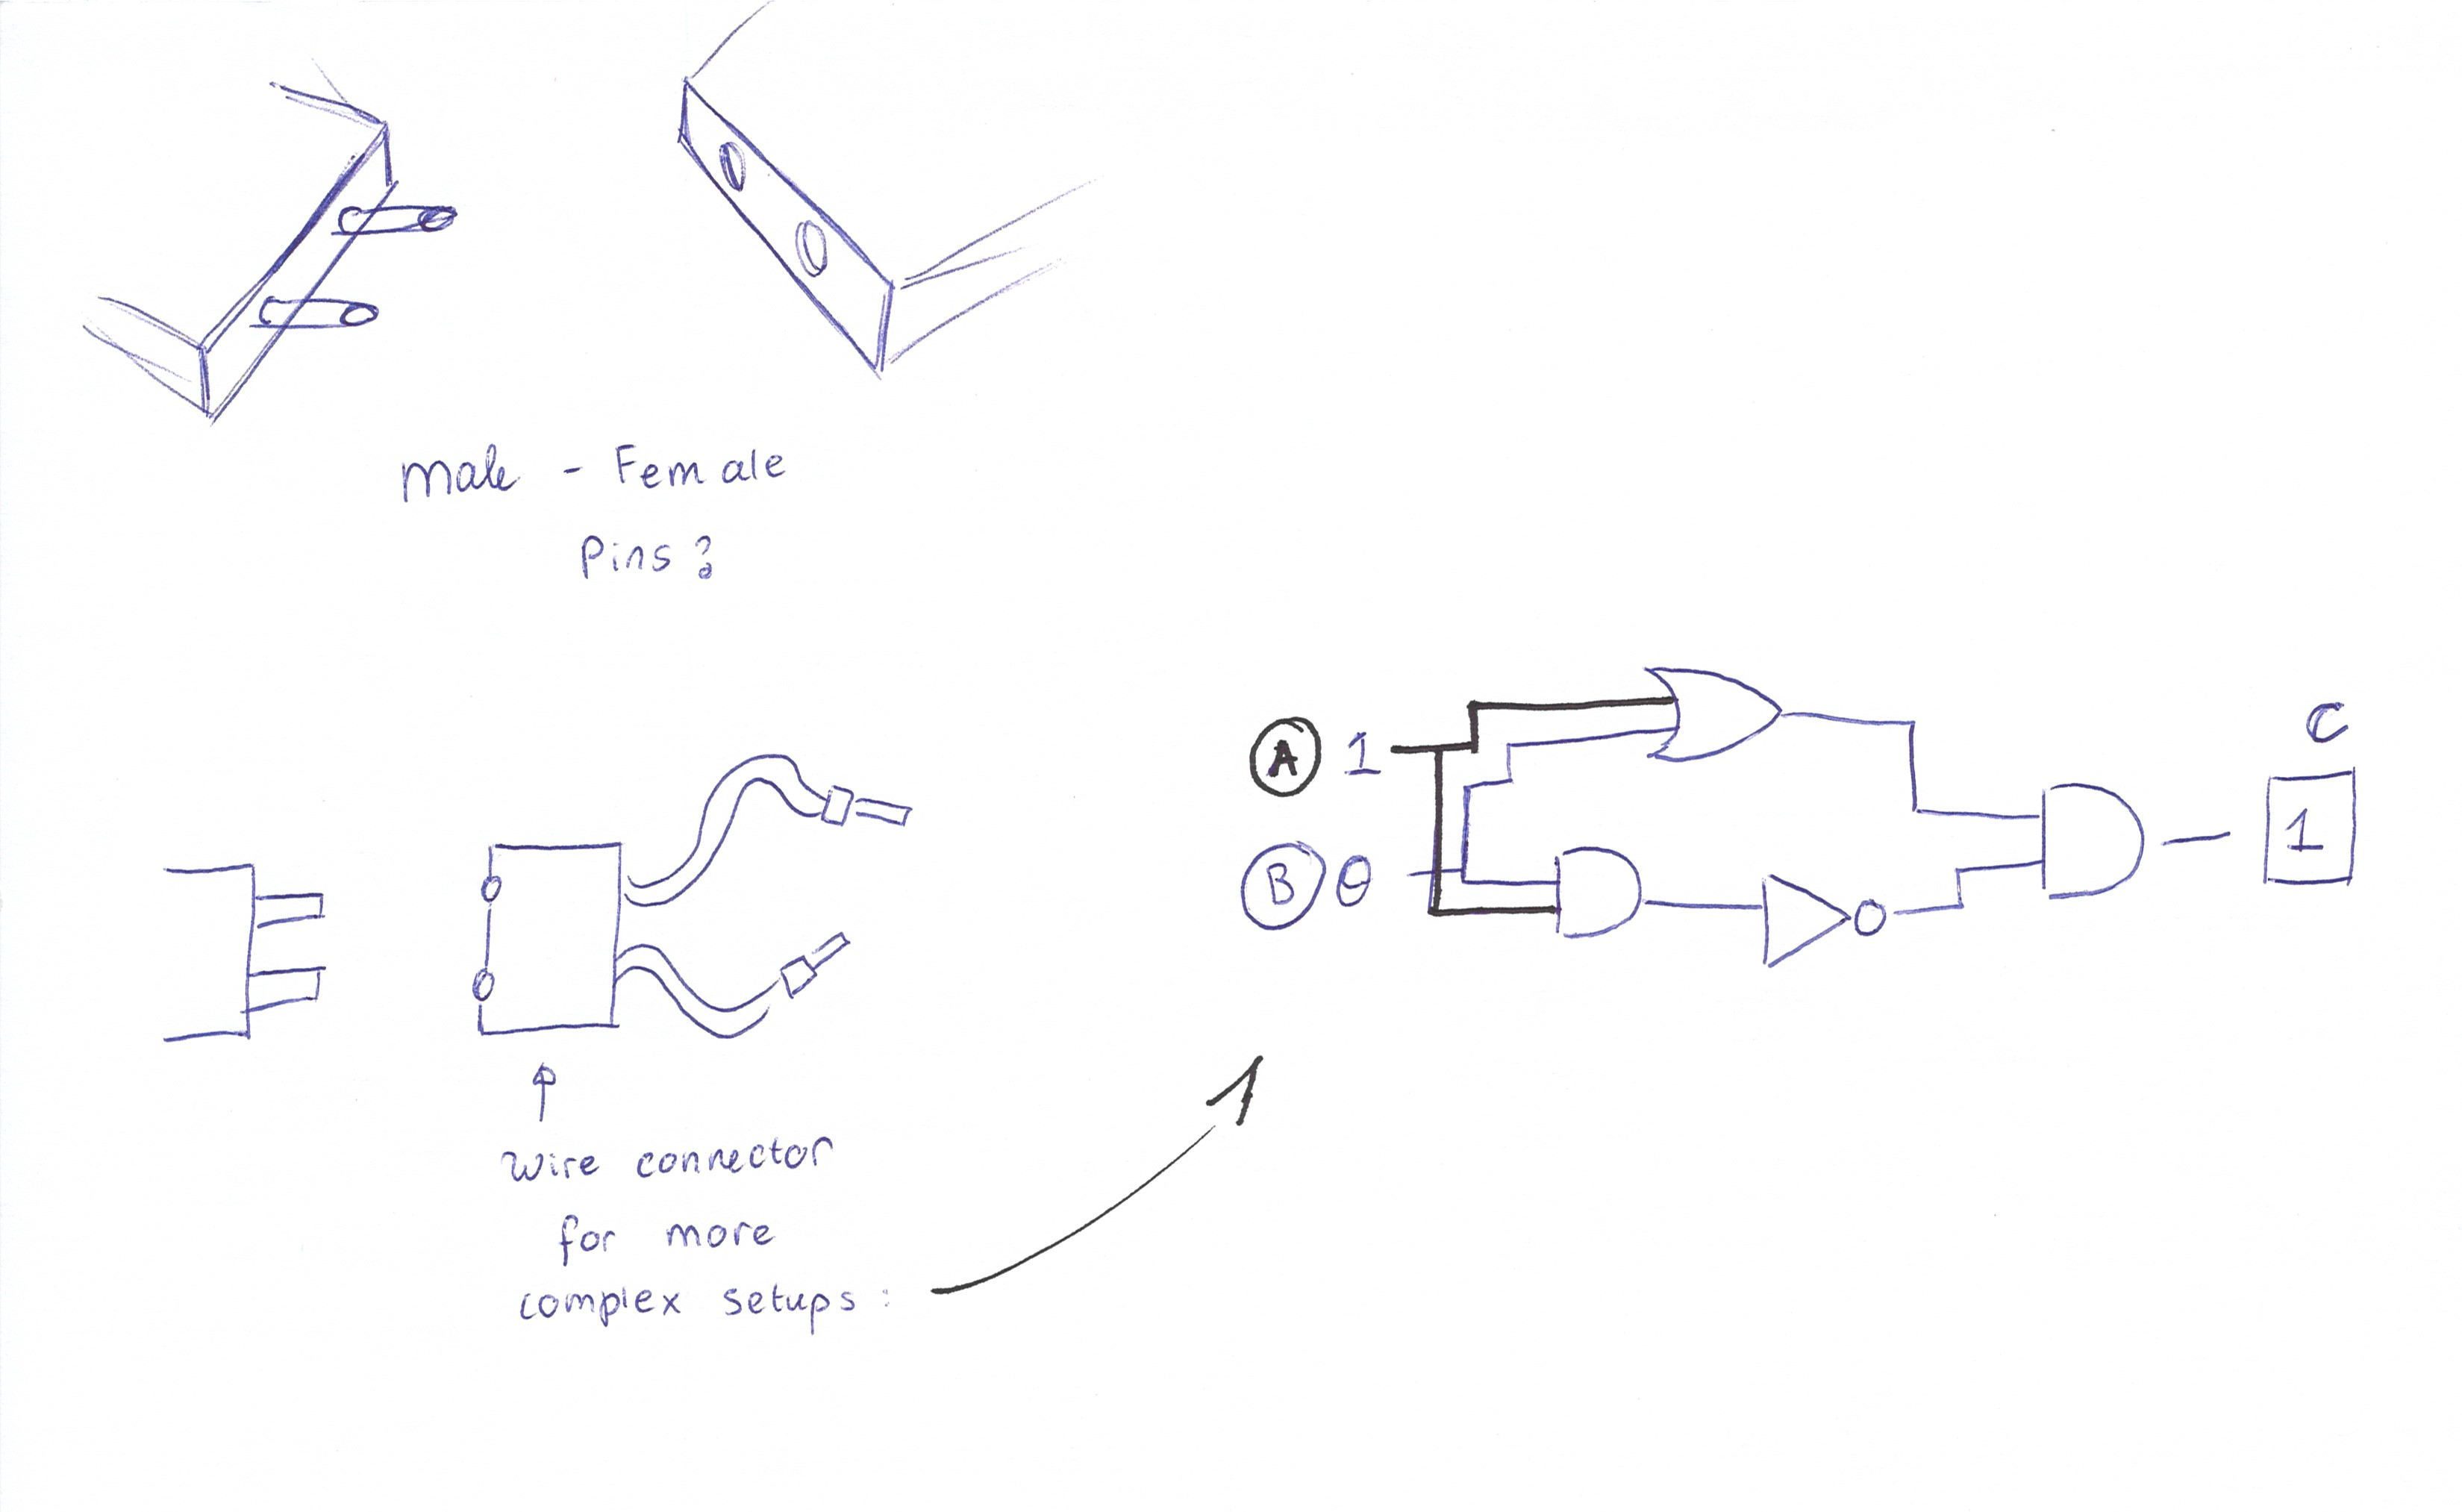 Male - Female
Pins?
wire connector
for more
complex setups:
A 1
B 0
C
1